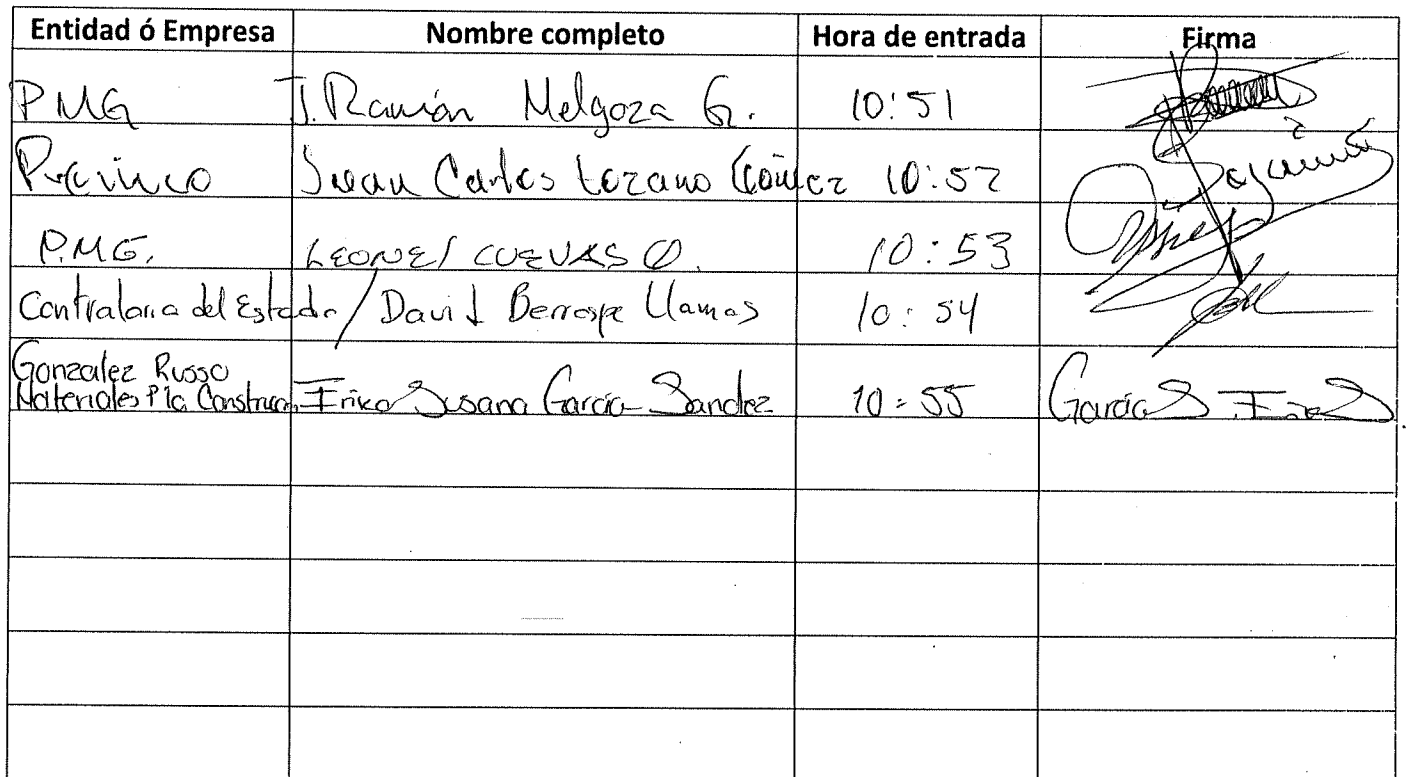 Entidad ó Empresa Nombre completo Hora de entrada Firma
PMG J. Ramón Melgoza G. 10:51
Juan Carlos Lozano Gómez 10:52
P.M.G. LEONEL CUEVAS O. 10:53
Contraloria del Estado / David Berrospe Llamas 10:54
Gonzalez Russo
Materiales P/la Construcc. Erika Susana Garcia Sandez 10:55 Garcia S